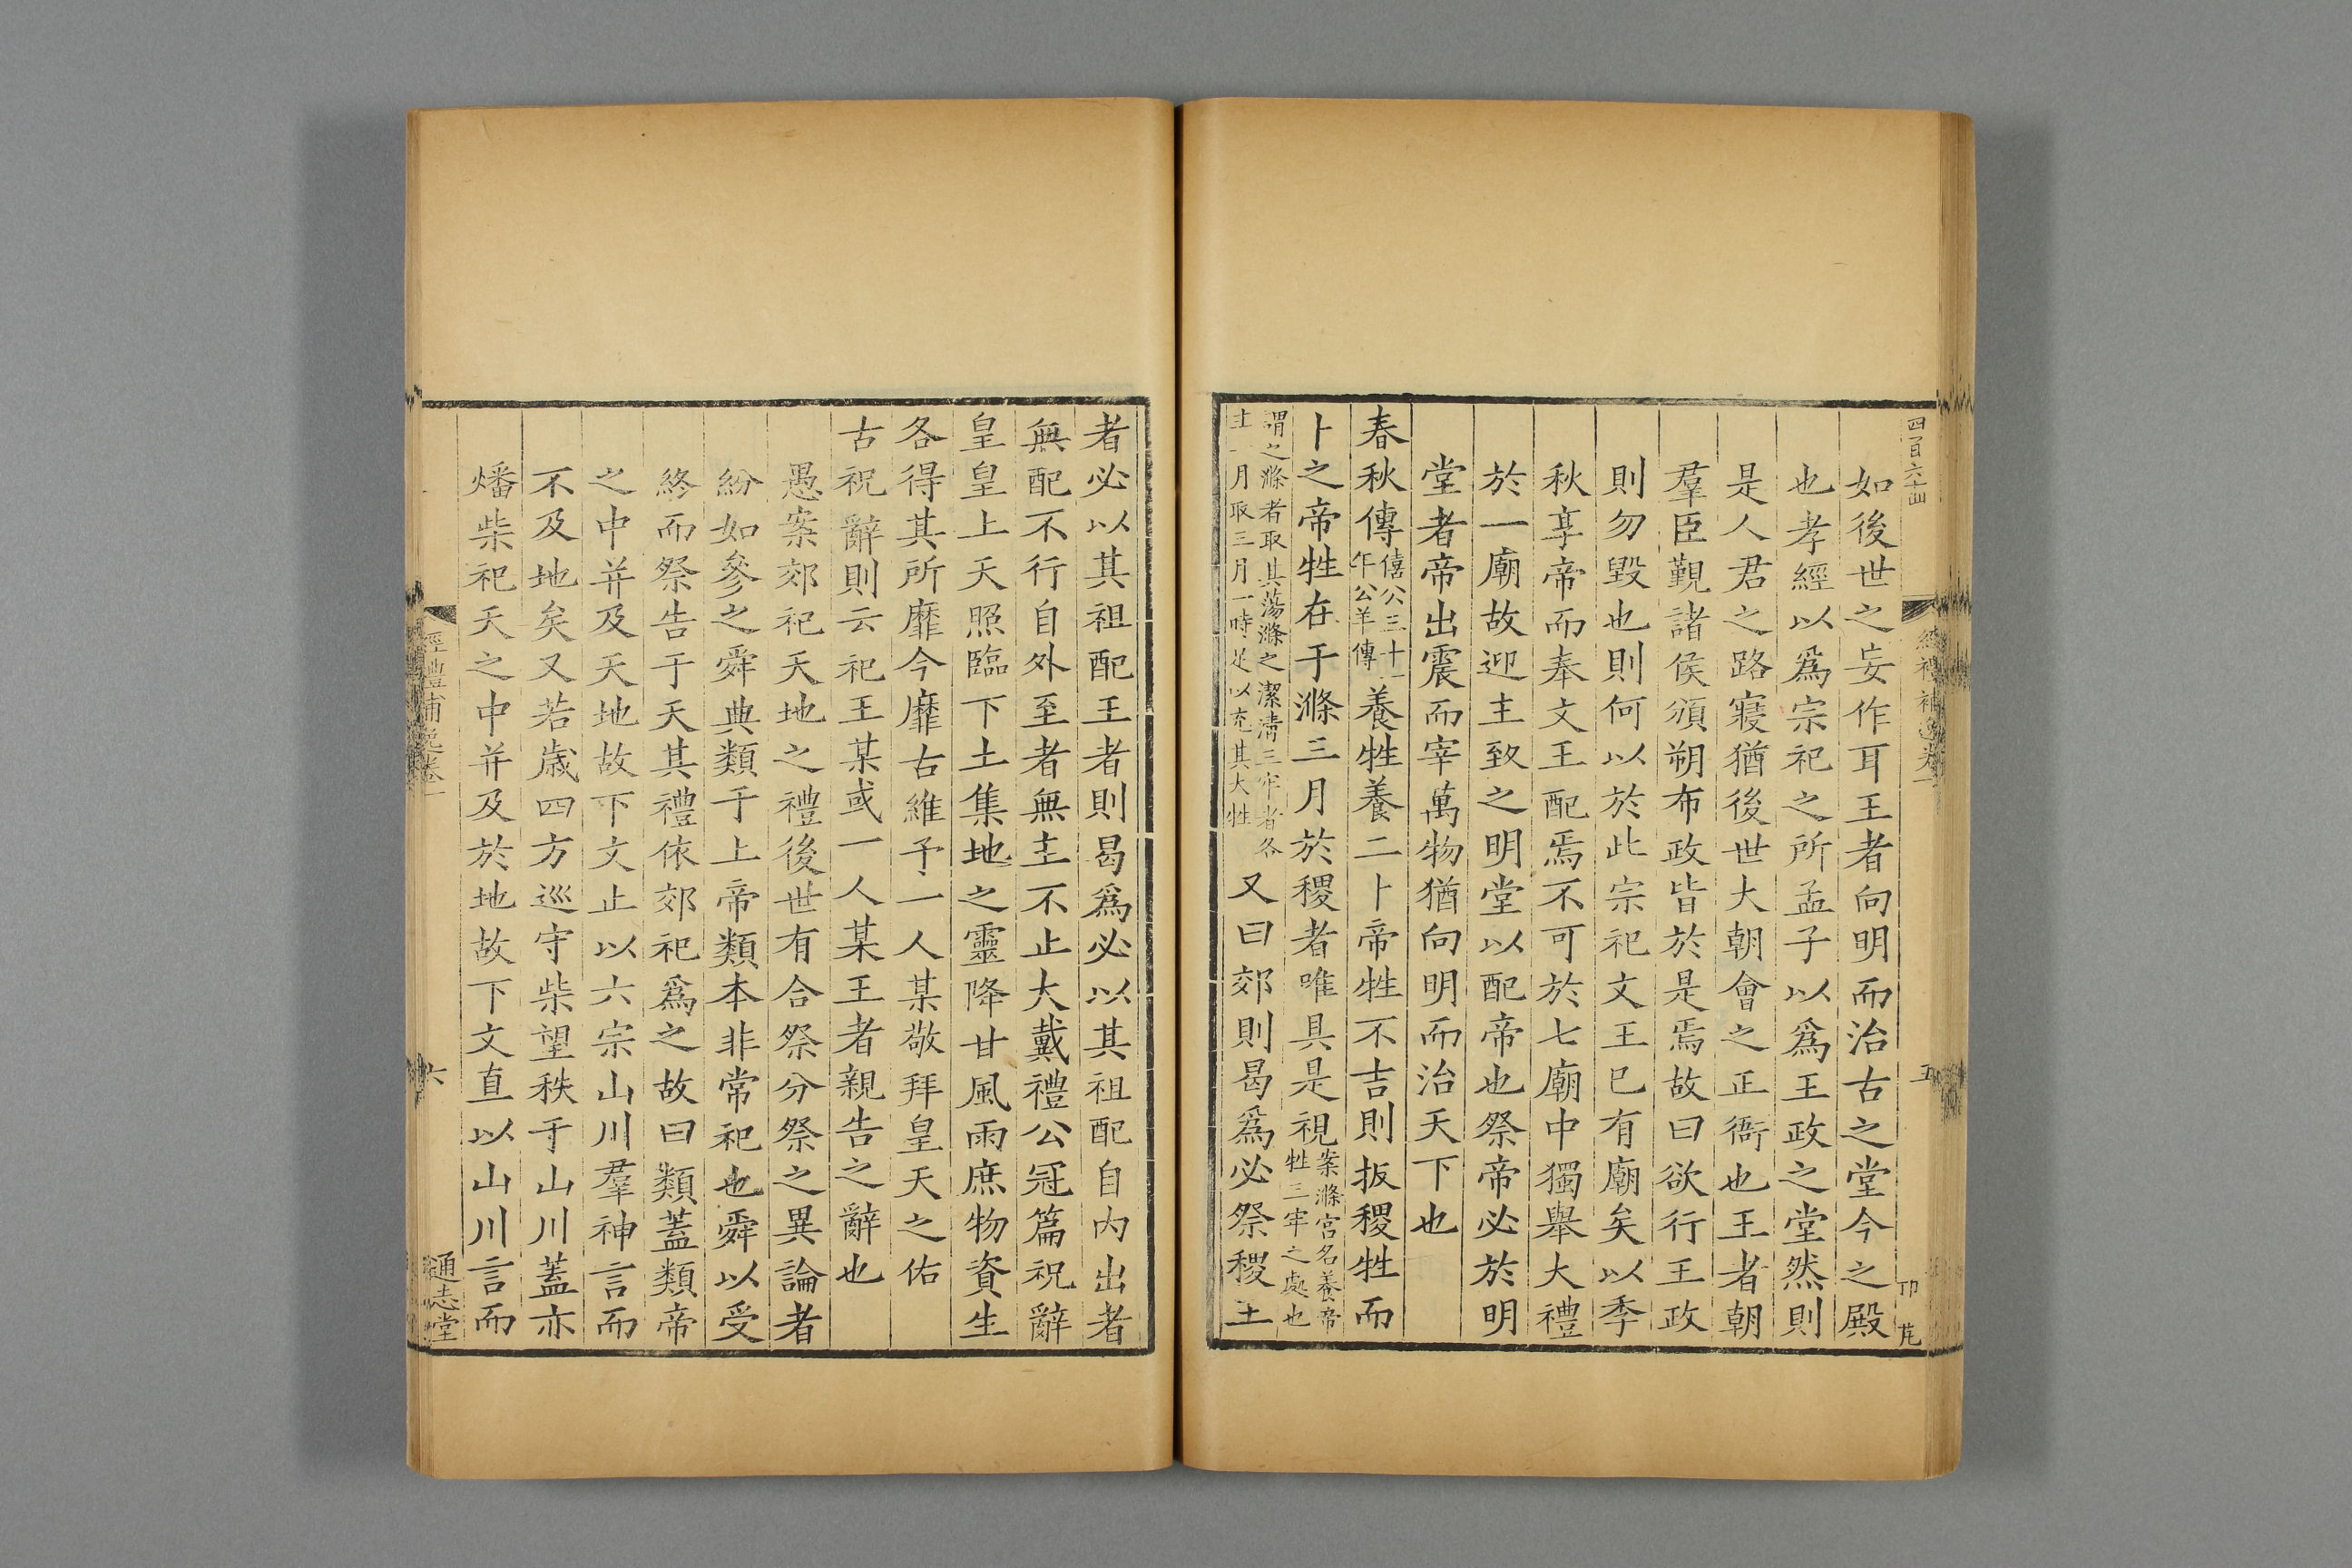 四百六十四
經禮補逸卷一
五
卬 芃
如後世之妄作耳王者向明而治古之堂今之殿
也孝經以爲宗祀之所孟子以爲王政之堂然則
是人君之路寢猶後世大朝會之正衙也王者朝
羣臣覲諸侯頒朔布政皆於是焉故曰欲行王政
則勿毀也則何以於此宗祀文王巳有廟矣以季
秋享帝而奉文王配焉不可於七廟中獨舉大禮
於一廟故迎主致之明堂以配帝也祭帝必於明
堂者帝出震而宰萬物猶向明而治天下也
春秋傳僖公三十一年公羊傳養牲養二卜帝牲不吉則扳稷牲而
卜之帝牲在于滌三月於稷者唯具是視案滌宮名養帝牲三牢之處也
謂之滌者取其蕩滌之潔淸三牢者各主一月取三月一時足以充其大牲又曰郊則曷爲必祭稷王
者必以其祖配王者則曷爲必以其祖配自內出者
無配不行自外至者無主不止大戴禮公冠篇祝辭
皇皇上天照臨下土集地之靈降甘風雨庶物資生
各得其所靡今靡古維予一人某敬拜皇天之佑
古祝辭則云祀王某或一人某王者親告之辭也
愚案郊祀天地之禮後世有合祭分祭之異論者
紛如參之舜典類于上帝類本非常祀也舜以受
終而祭告于天其禮依郊祀爲之故曰類蓋類帝
之中并及天地故下文止以六宗山川羣神言而
不及地矣又若歲四方巡守柴望秩于山川蓋亦
燔柴祀天之中并及於地故下文直以山川言而
經禮補逸卷一
六
通志堂